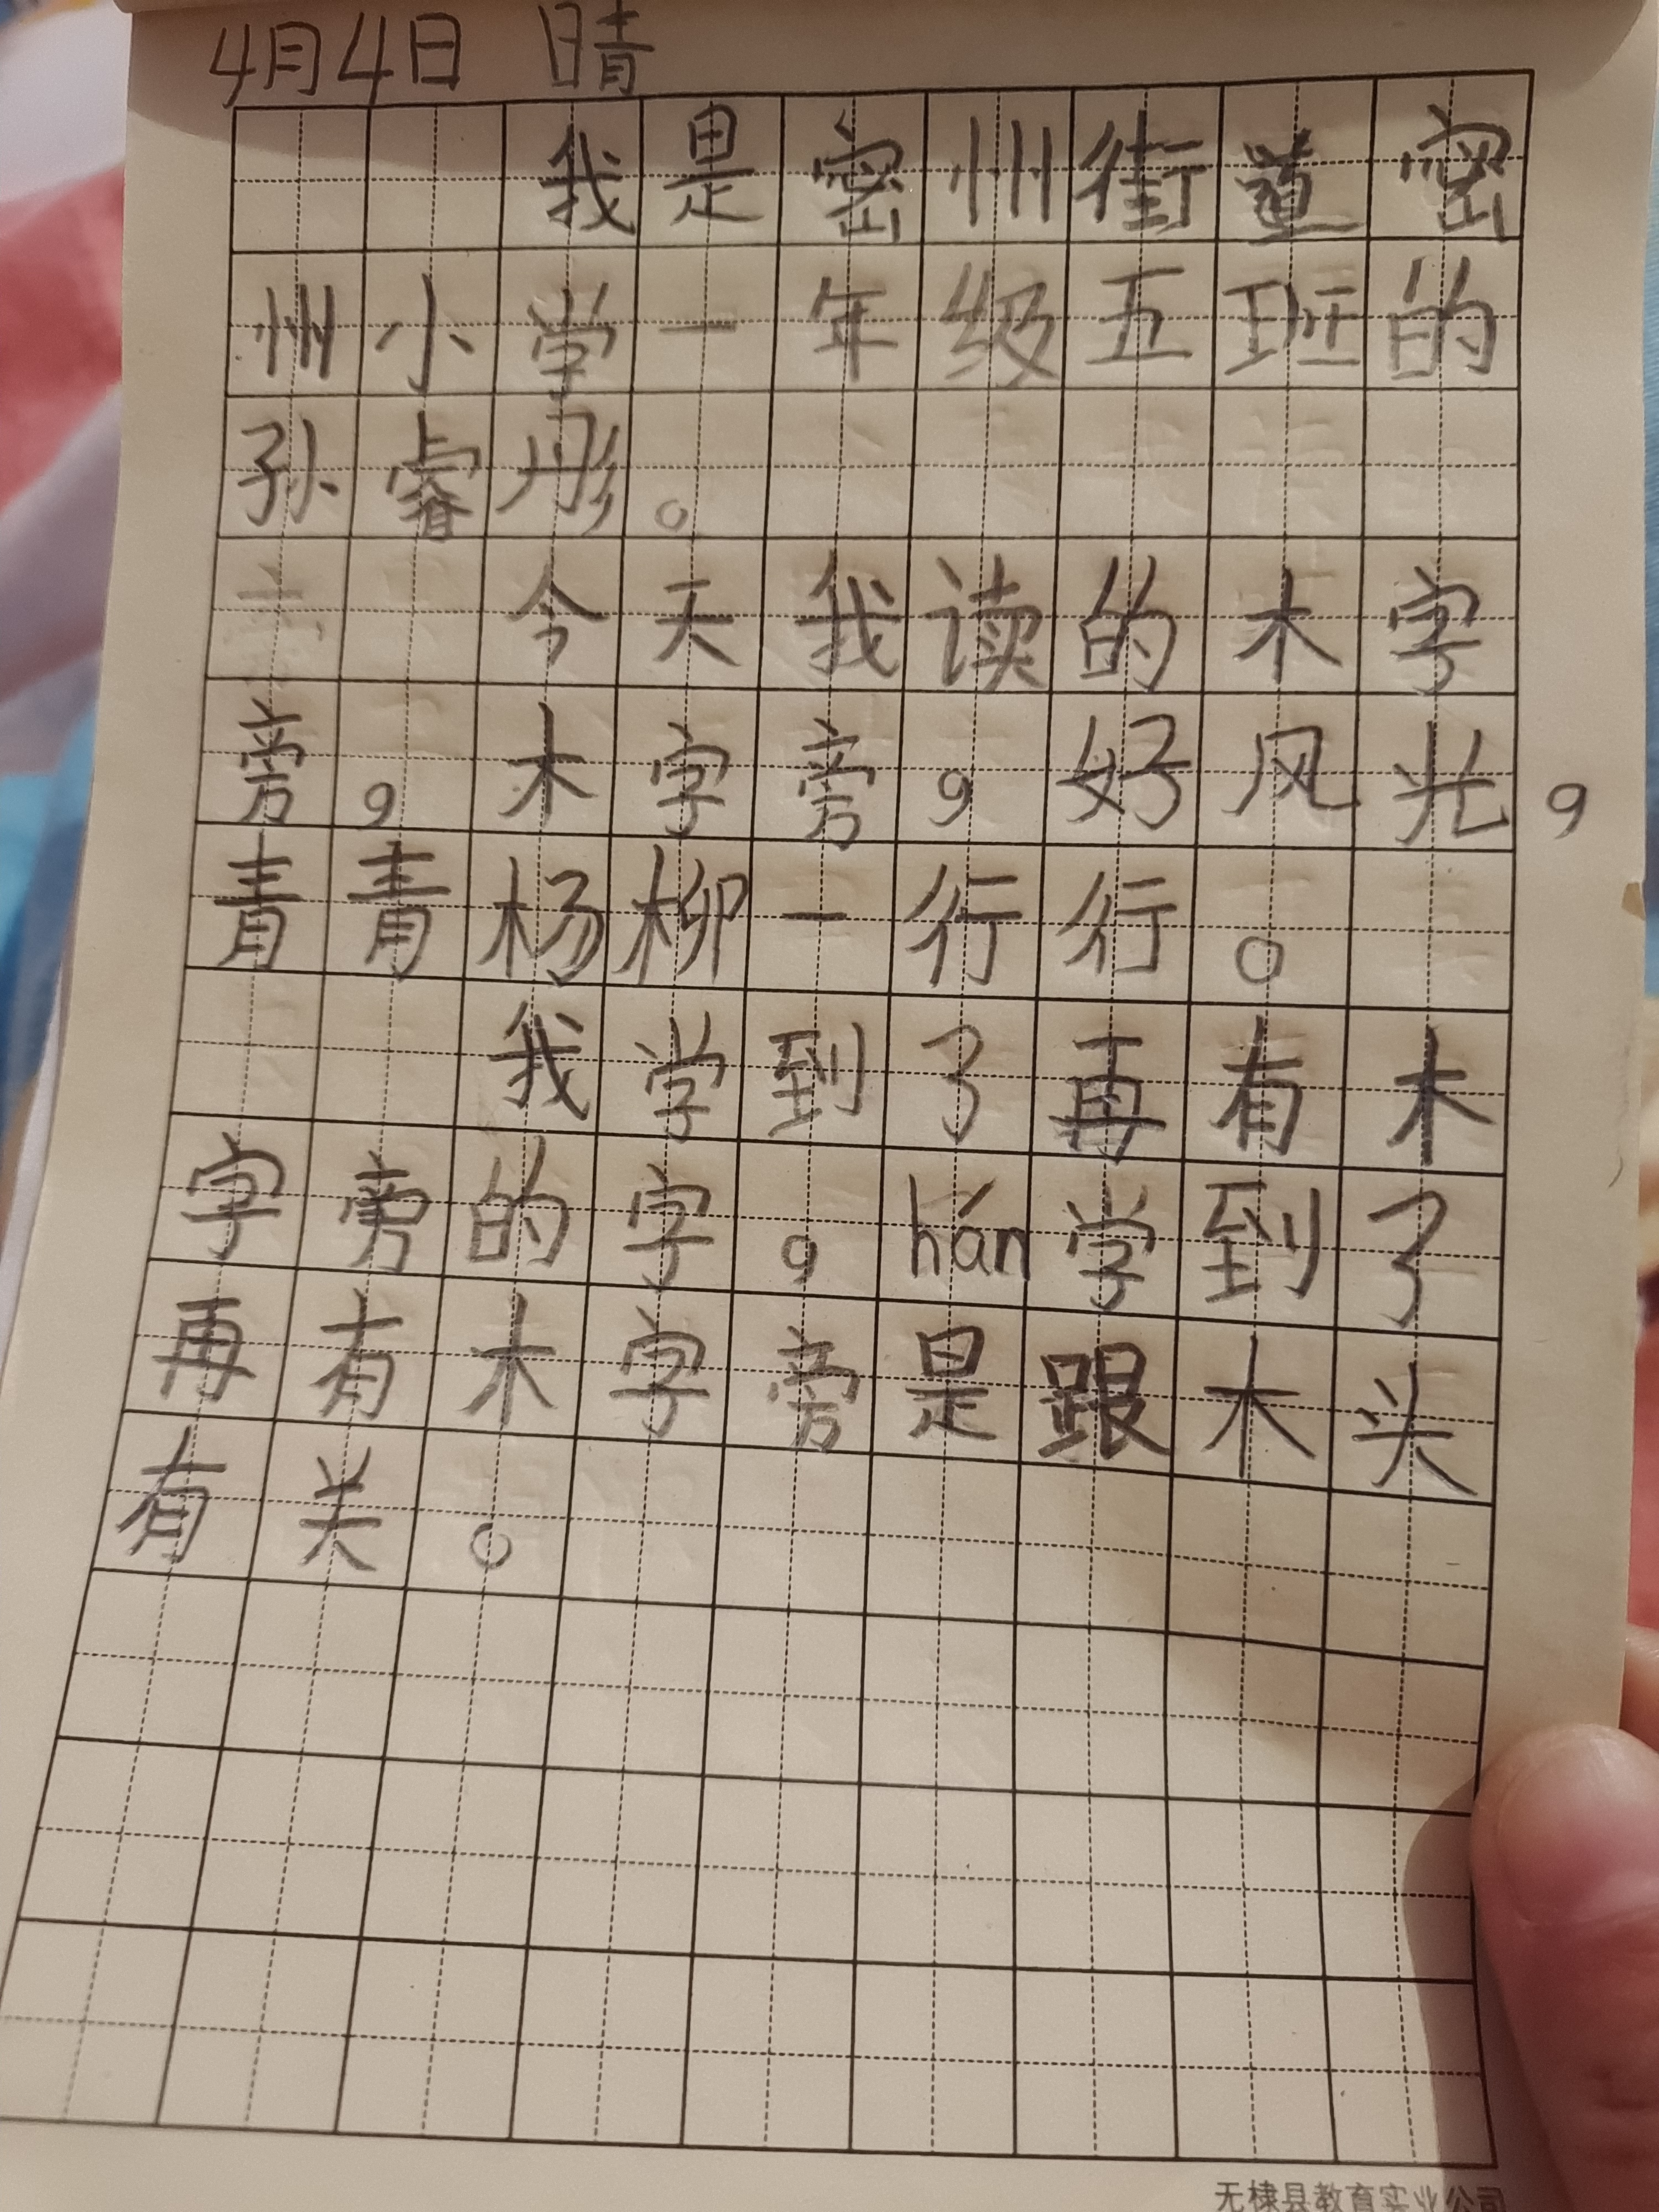 4月4日 晴
我是密州街道密
州小学一年级五班的
孙睿彤。
今天我读的木字
旁,木字旁,好风光,
青青杨柳一行行。
我学到了再有木
字旁的字,hán学到了
再有木字旁是跟木头
有关。
无棣县教育实业公司